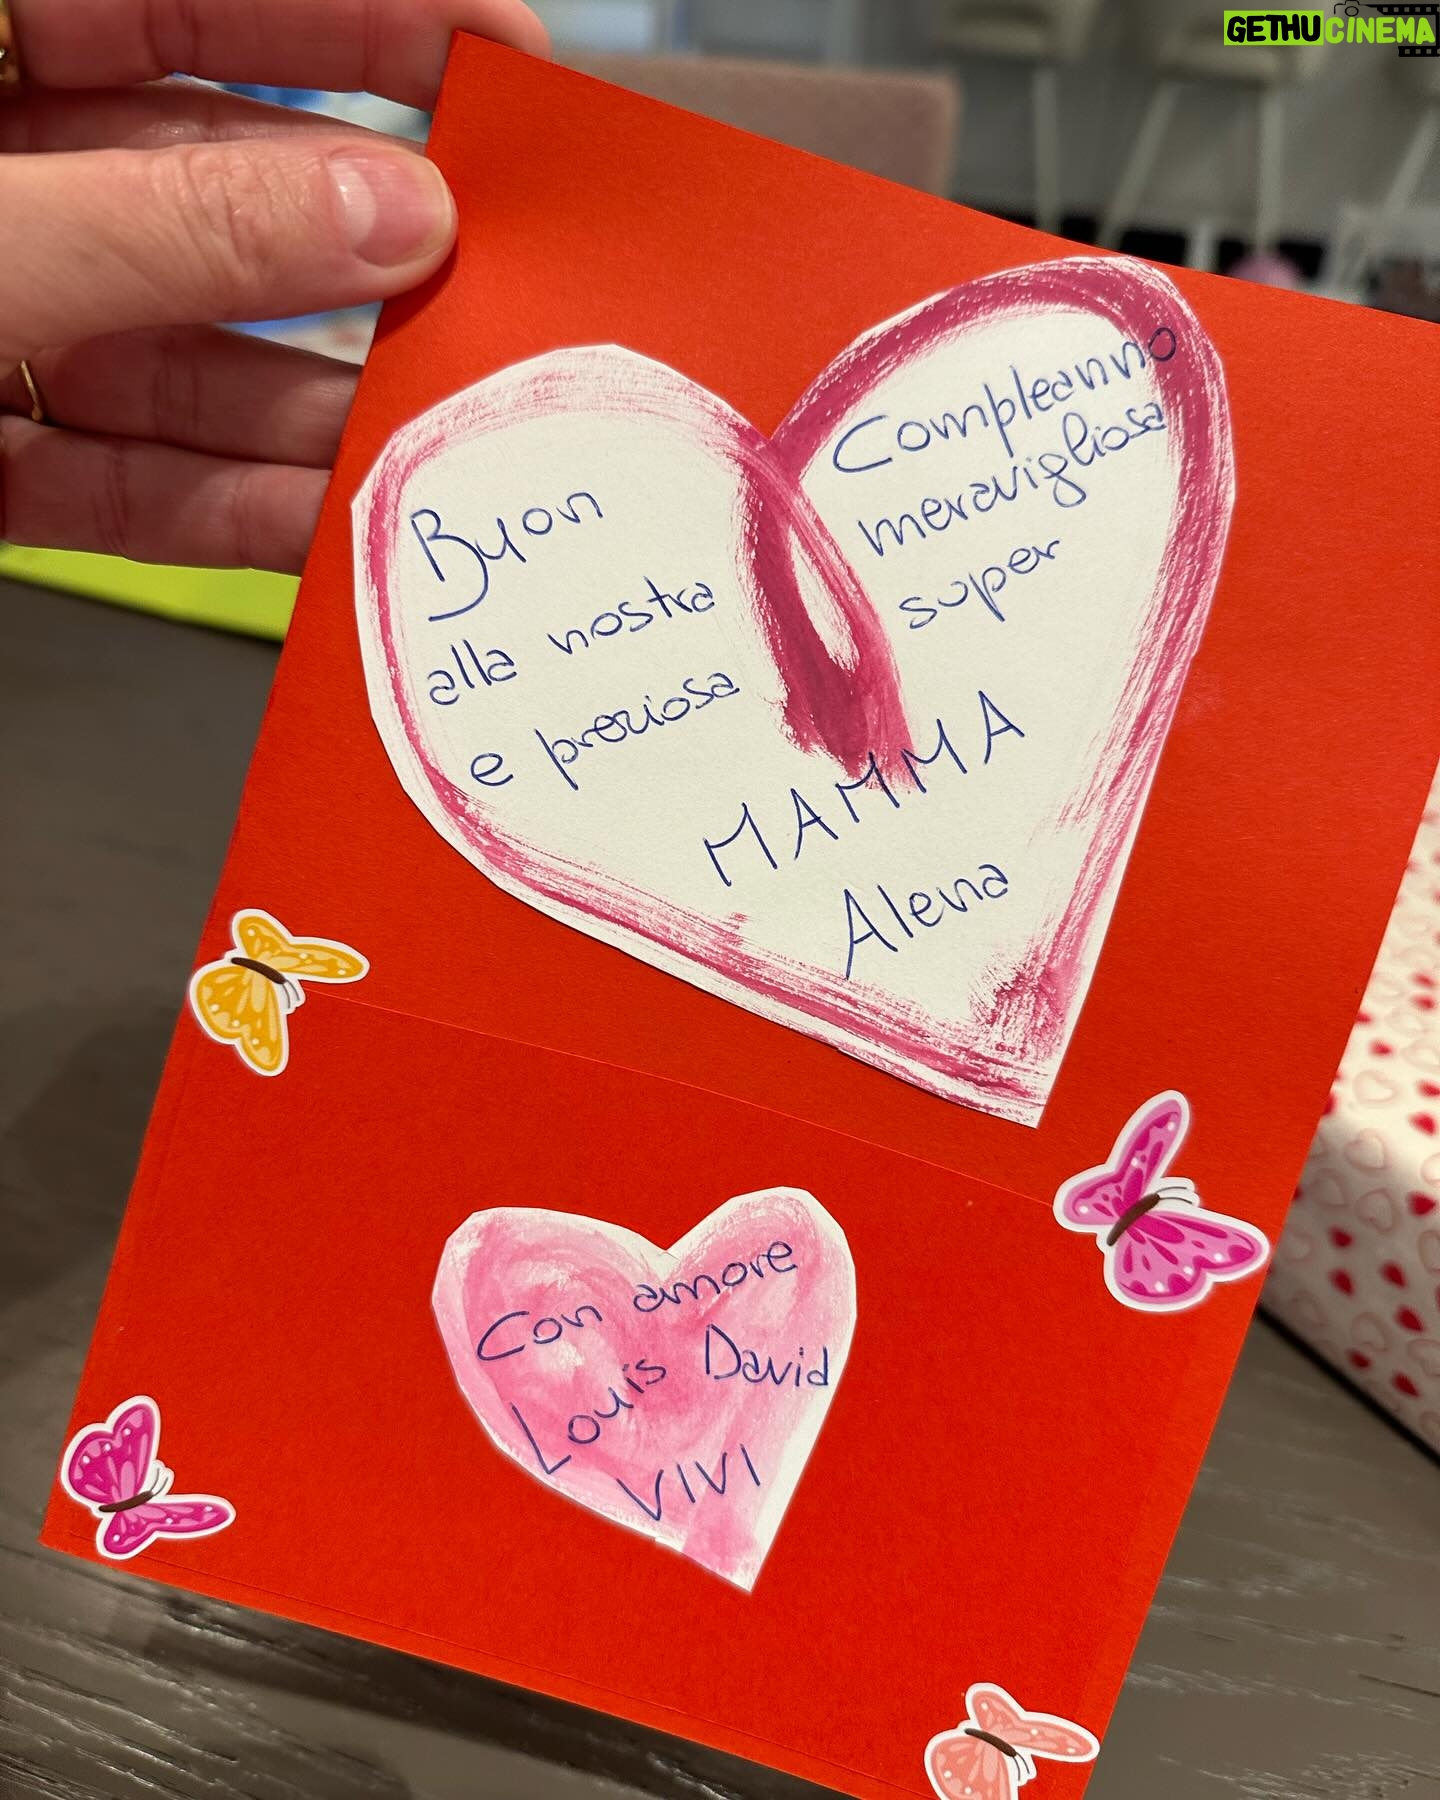 GETHUCINEMA
Buon Compleanno
alla nostra meravigliosa
e preziosa super
MAMMA
Alena
Con amore
Louis David
VIVI